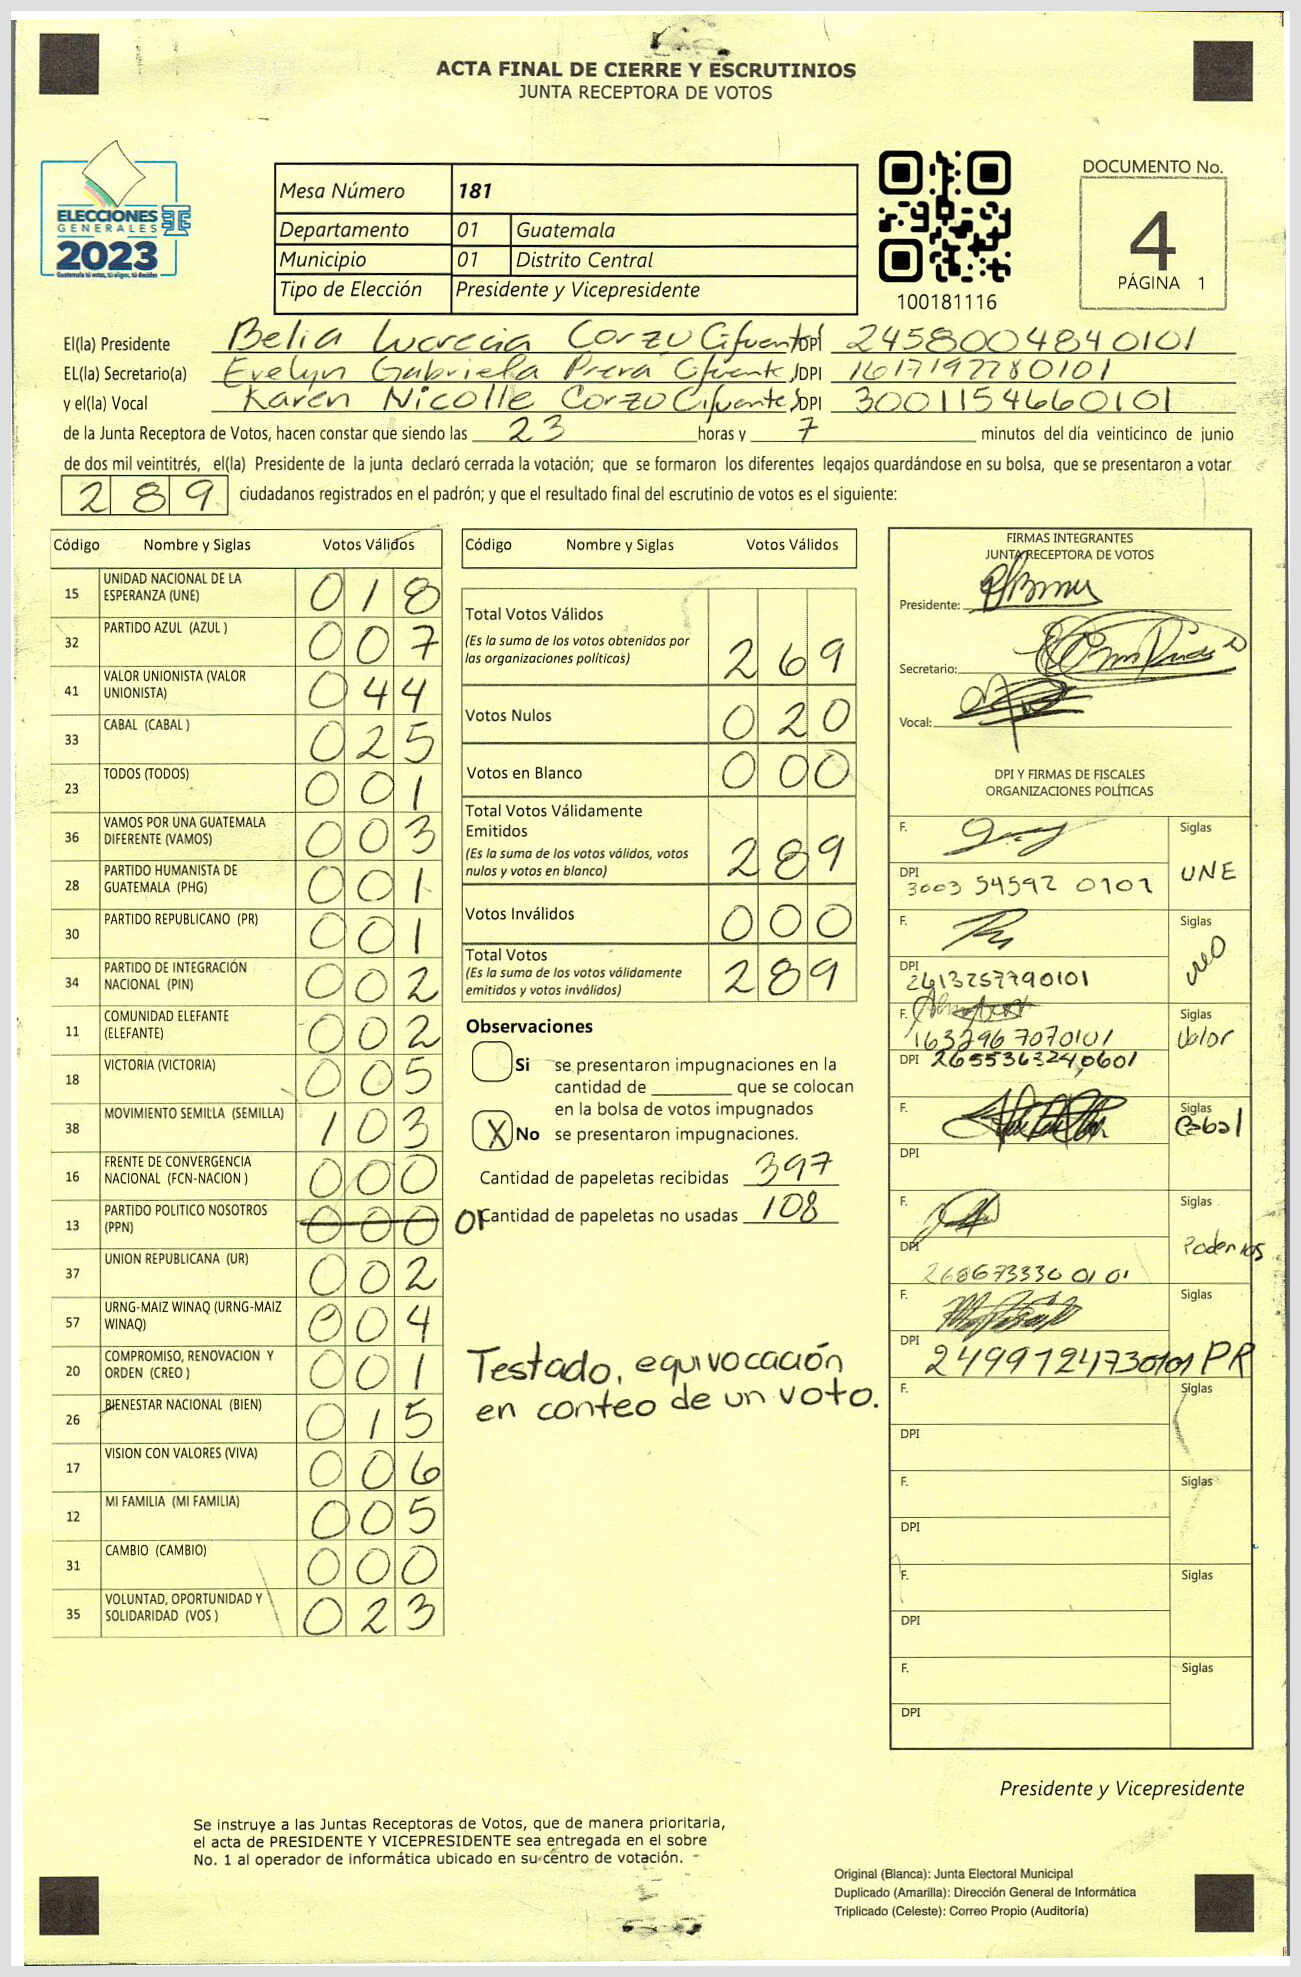 ACTA FINAL DE CIERRE Y ESCRUTINIOS
JUNTA RECEPTORA DE VOTOS
ELECCIONES
GENERALES
2023
Guatemala tú votas, tú eliges, tú decides
Mesa Número 181
Departamento 01 Guatemala
Municipio 01 Distrito Central
Tipo de Elección Presidente y Vicepresidente
100181116
DOCUMENTO No.
4
PÁGINA 1
El(la) Presidente Belia Lucrecia Corzo Cifuentes DPI 2458004840101
EL(la) Secretario(a) Evelyn Gabriela Prera Cifuentes DPI 1617192280101
y el(la) Vocal Karen Nicolle Corzo Cifuentes DPI 3001154660101
de la Junta Receptora de Votos, hacen constar que siendo las 23 horas y 7 minutos del día veinticinco de junio
de dos mil veintitrés, el(la) Presidente de la junta declaró cerrada la votación; que se formaron los diferentes legajos guardándose en su bolsa, que se presentaron a votar
289 ciudadanos registrados en el padrón; y que el resultado final del escrutinio de votos es el siguiente:
Código Nombre y Siglas Votos Válidos
15 UNIDAD NACIONAL DE LA ESPERANZA (UNE) 018
32 PARTIDO AZUL (AZUL ) 007
41 VALOR UNIONISTA (VALOR UNIONISTA) 044
33 CABAL (CABAL ) 025
23 TODOS (TODOS) 001
36 VAMOS POR UNA GUATEMALA DIFERENTE (VAMOS) 003
28 PARTIDO HUMANISTA DE GUATEMALA (PHG) 001
30 PARTIDO REPUBLICANO (PR) 001
34 PARTIDO DE INTEGRACIÓN NACIONAL (PIN) 002
11 COMUNIDAD ELEFANTE (ELEFANTE) 002
18 VICTORIA (VICTORIA) 005
38 MOVIMIENTO SEMILLA (SEMILLA) 103
16 FRENTE DE CONVERGENCIA NACIONAL (FCN-NACION ) 000
13 PARTIDO POLITICO NOSOTROS (PPN) 000 01
37 UNION REPUBLICANA (UR) 002
57 URNG-MAIZ WINAQ (URNG-MAIZ WINAQ) 004
20 COMPROMISO, RENOVACION Y ORDEN (CREO ) 001
26 BIENESTAR NACIONAL (BIEN) 015
17 VISION CON VALORES (VIVA) 006
12 MI FAMILIA (MI FAMILIA) 005
31 CAMBIO (CAMBIO) 000
35 VOLUNTAD, OPORTUNIDAD Y SOLIDARIDAD (VOS ) 023
Código Nombre y Siglas Votos Válidos
Total Votos Válidos 269
(Es la suma de los votos obtenidos por
las organizaciones políticas)
Votos Nulos 020
Votos en Blanco 000
Total Votos Válidamente
Emitidos 289
(Es la suma de los votos válidos, votos
nulos y votos en blanco)
Votos Inválidos 000
Total Votos 289
(Es la suma de los votos válidamente
emitidos y votos inválidos)
Observaciones
Si se presentaron impugnaciones en la
cantidad de ________ que se colocan
en la bolsa de votos impugnados
X No se presentaron impugnaciones.
Cantidad de papeletas recibidas 397
Cantidad de papeletas no usadas 108
Testado, equivocación
en conteo de un voto.
FIRMAS INTEGRANTES
JUNTA RECEPTORA DE VOTOS
Presidente:
Secretario:
Vocal:
DPI Y FIRMAS DE FISCALES
ORGANIZACIONES POLÍTICAS
F. Siglas
DPI 3003 54592 0101 UNE
F. Siglas
DPI 2413257790101
F. Siglas
1632967070101 Valor
DPI 2655363240601
F. Siglas
Cabal
DPI
F. Siglas
DPI 268673330 01 01 Podemos
F. Siglas
DPI 2499124730101 PR
F. Siglas
DPI
F. Siglas
DPI
F. Siglas
DPI
F. Siglas
DPI
Presidente y Vicepresidente
Se instruye a las Juntas Receptoras de Votos, que de manera prioritaria,
el acta de PRESIDENTE Y VICEPRESIDENTE sea entregada en el sobre
No. 1 al operador de informática ubicado en su centro de votación.
Original (Blanca): Junta Electoral Municipal
Duplicado (Amarilla): Dirección General de Informática
Triplicado (Celeste): Correo Propio (Auditoría)